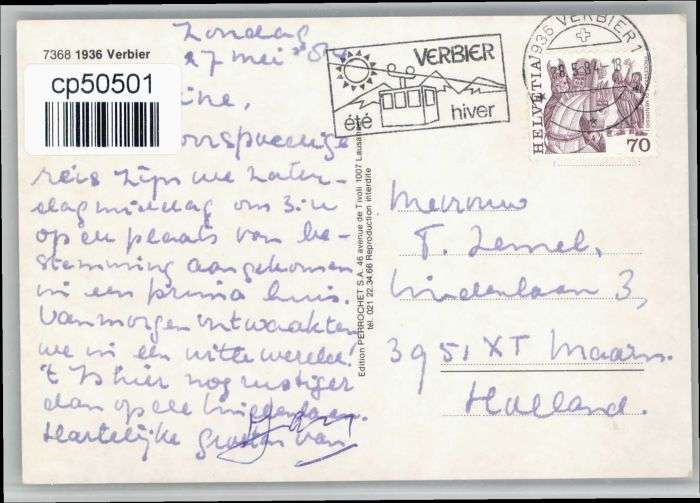 Zondag
27 mei '84
7368 1936 Verbier
cp50501
ine,
voorspoedige
reis zijn we Zater-
dagmiddag om 3 in
op de plaats van be-
stemming aangekomen
in een prima huis.
Vanmorgen ontwaakten
we in een witte wereld!
't Is hier nog rustiger
dan op de Lindenlaan.
Hartelijke groeten van
Edition PERROCHET S.A. 46 avenue de Tivoli 1007 Lausanne
tél. 021 22.34.66 Reproduction interdite
VERBIER
été hiver
1936 VERBIER 1
HELVETIA
70
Mevrouw
T. Zemel,
Lindenlaan 3,
3951 XT Maarn.
Holland.